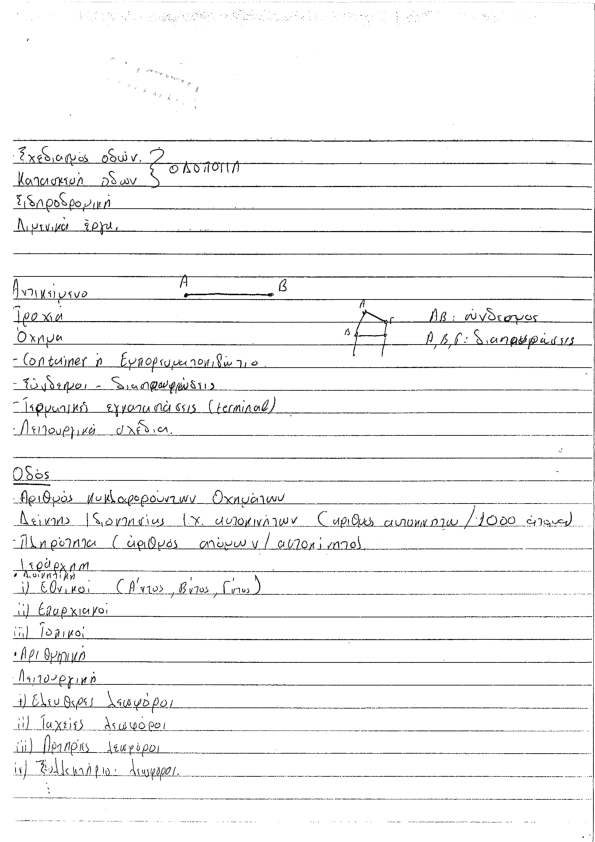 Σχεδιασμός οδών.
Κατασκευή οδών } ΟΔΟΠΟΙΙΑ
Σιδηροδρομική
Λιμενικά έργα.
Αντικείμενο A B
Τροχιά A Γ AB: σύνδεσμος
Όχημα B A, B, Γ: διασταυρώσεις
- Container ή Εμπορευματοκιβώτιο.
- Σύνδεσμοι - διασταυρώσεις
- Τερματικές εγκαταστάσεις (terminal)
- Λειτουργικά σχέδια.
Οδός
- Αριθμός κυκλοφορούντων Οχημάτων
Δείκτης Ιδιοκτησίας Ι.Χ. αυτοκινήτων (αριθμός αυτοκινήτα / 1000 άτομα)
- Πληρότητα (αριθμός ατόμων / αυτοκίνητο)
Ιεράρχηση
• Διοικητική
i) Εθνικοί (Α'ντος, Β'ντος, Γ'ντος)
ii) Επαρχιακοί
iii) Τοπικοί
• Αριθμητική
Λειτουργική
i) Ελεύθερες λεωφόροι
ii) Ταχείες λεωφόροι
iii) λεωφόροι
iv) λεωφόροι.